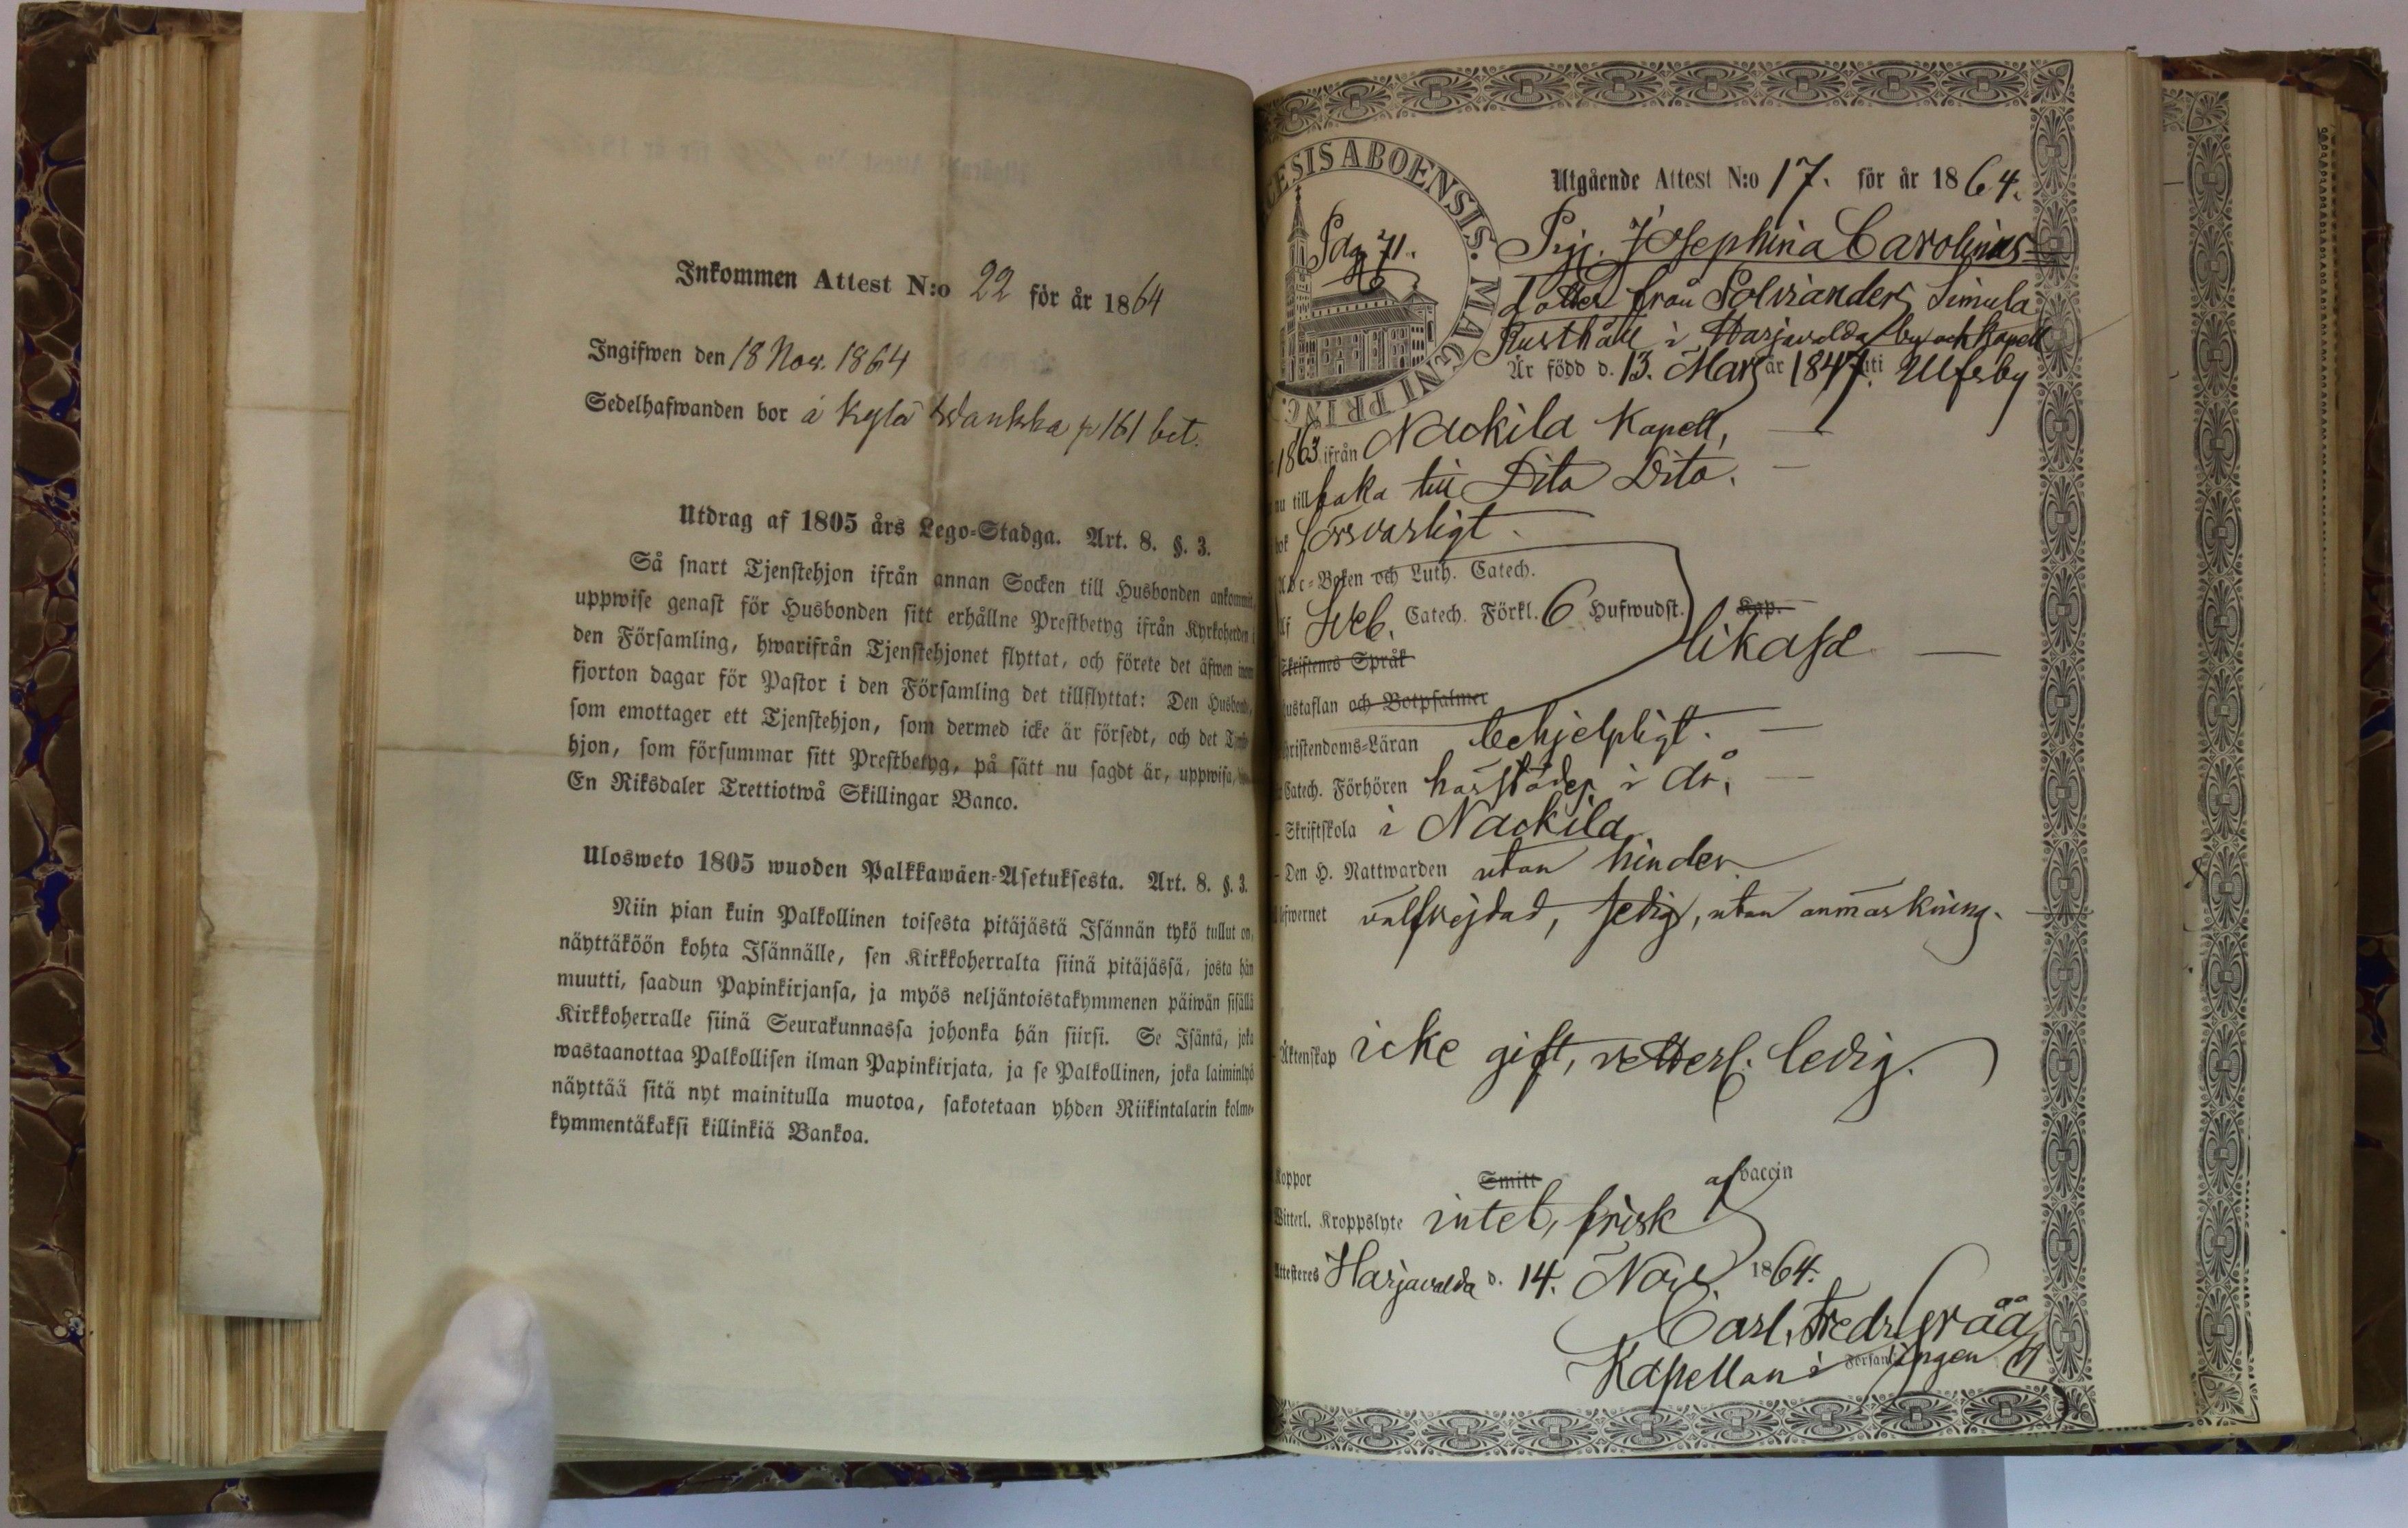 Inkommen Attest N:o 22 för år 1864
Ingifwen den 18 Nov. 1864
Sedelhafwanden bor å Kylä p 161 bet.
Utdrag af 1805 års Lego-Stadga. Art. 8. §. 3.
Så snart Tjenstehjon ifrån annan Socken till Husbonden ankommit,
uppwise genast för Husbonden sitt erhållne Prestbetyg ifrån Kyrkoherden i
den Församling, hwarifrån Tjenstehjonet flyttat, och förete det äfwen inom
fjorton dagar för Pastor i den Församling det tillflyttat: Den Husbonde,
som emottager ett Tjenstehjon, som dermed icke är försedt, och det Tjenste-
hjon, som försummar sitt Prestbetyg, på sätt nu sagdt är, uppwisa,
En Riksdaler Trettiotwå Skillingar Banco.
Ulosweto 1805 wuoden Palkkawäen-Asetuksesta. Art. 8. §. 3.
Niin pian kuin Palkollinen toisesta pitäjästä Isännän tykö tullut on,
näyttäköön kohta Isännälle, sen Kirkkoherralta siinä pitäjässä, josta hän
muutti, saadun Papinkirjansa, ja myös neljäntoistakymmenen päiwän sisällä
Kirkkoherralle siinä Seurakunnassa johonka hän siirsi. Se Isäntä, joka
wastaanottaa Palkollisen ilman Papinkirjata, ja se Palkollinen, joka laiminlyö
näyttää sitä nyt mainitulla muotoa, sakotetaan yhden Riikintalarin kolme-
kymmentäkaksi killinkiä Bankoa.
CESIS ABOENSIS. MAGNI PRINC.
Pag 71.
Utgående Attest N:o 17. för år 1864.
Pig. Josephina Carolina
Dotter från Polviander, Simula
Rusthåll i Harjavalda by och Kapell
Är född d. 13. Mars år 1847. uti Ulfsby
1863 ifrån Nackila Kapell,
nu tillbaka till Dito Dito.
bok försvarligt
Abc-Boken och Luth. Catech.
af Sveb. Catech. Förkl. 6 Hufwudst. Kap.
likaså
Skriftenes Språk
Hustaflan och Botpsalmer
Christendoms-Läran behjelpligt.
Catech. Förhören härstädes i år,
Skriftskola i Nackila
Den H. Nattwarden utan hinder
Lefwernet välfrejdad, sedig, utan anmärkning.
Äktenskap icke gift, vetterl. ledig.
Koppor Smitt af vaccin
Witterl. Kroppslyte intet, frisk
Attesteres Harjavalda d. 14. Nov. 1864.
Carl. Fredr. Gråå
Kapellan i Församlingen